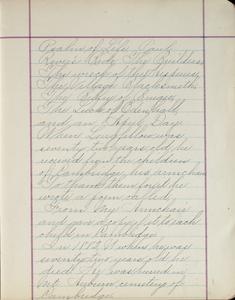 Psalm of Life, Paul
Revere's Ride, The Builders
The wreck of the Hesperus
The Village Blacksmith
The
The Luck of Edenhall
and an April Day.
When Longfellow was
seventy two years old he
received from the children
of Cambridge, his armchair
To thank them for it he
wrote a poem called
From My Armchair
and gave a copy of it to each
child in Cambridge
In 1882 when he was
seventy five years old he
died. He was buried in
Mt. Auburn cemetery of
Cambridge.